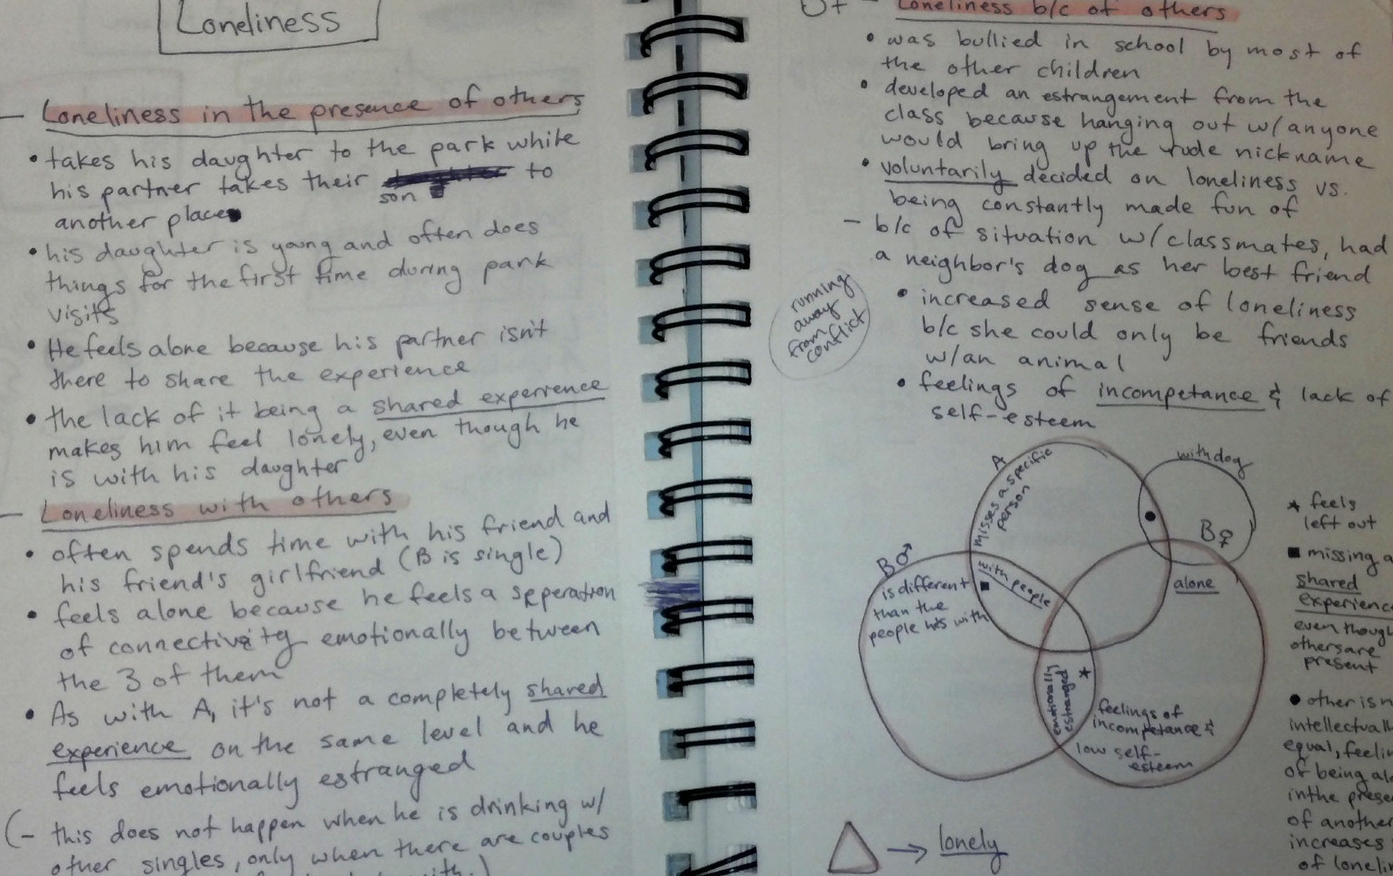 Loneliness
— Loneliness in the presence of others
• takes his daughter to the park while
his partner takes their to
son
another place
• his daughter is young and often does
things for the first time during park
visits
• He feels alone because his partner isn't
there to share the experience
• the lack of it being a shared experience
makes him feel lonely, even though he
is with his daughter
— Loneliness with others
• often spends time with his friend and
his friend's girlfriend (B is single)
• feels alone because he feels a seperation
of connectivity emotionally between
the 3 of them
• As with A, it's not a completely shared
experience on the same level and he
feels emotionally estranged
(– this does not happen when he is drinking w/
other singles, only when there are couples
with.)
– Loneliness b/c of others
• was bullied in school by most of
the other children
• developed an estrangement from the
class because hanging out w/anyone
would bring up the rude nickname
• voluntarily decided on loneliness vs.
being constantly made fun of
– b/c of situation w/classmates, had
a neighbor's dog as her best friend
• increased sense of loneliness
b/c she could only be friends
w/an animal
• feelings of incompetance & lack of
self-esteem
running
away
from
conflict
A
misses a specific
person
with dog
B♀
alone
B♂
is different
than the
people he's with
with people
■
●
★
emotionally
estranged
feelings of
incompetance &
low self-
esteem
★ feels
left out
■ missing a
shared
experience
even though
others are
present
● other isn
intellectuall
equal, feelin
of being al
in the prese
of another
increases
of loneli
△ → lonely